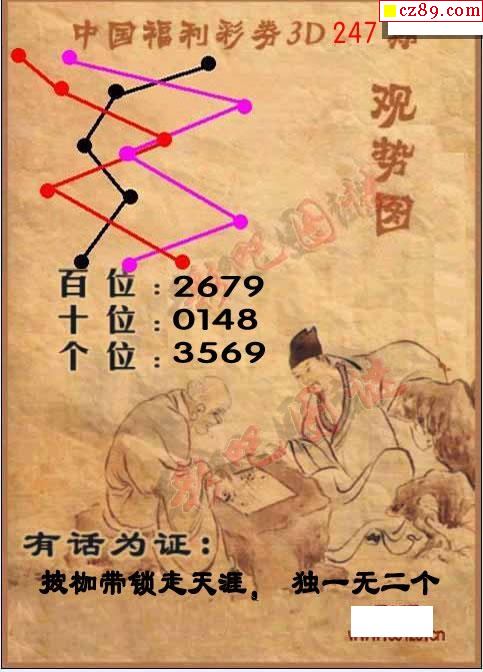 cz89.com
中国福利彩券3D 247
观势图
百位：2679
十位：0148
个位：3569
有话为证：
披枷带锁走天涯。 独一无二个